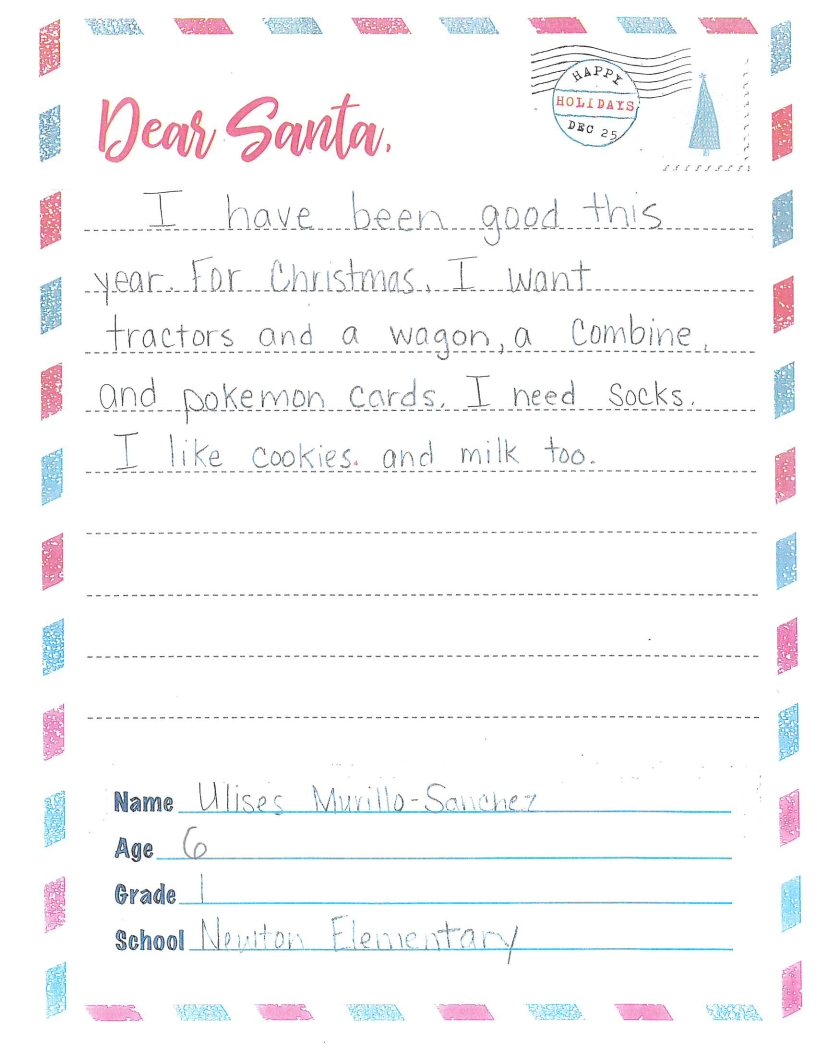 HAPPY
HOLIDAYS
DEC 25
Dear Santa,
I have been good this
year. For Christmas, I want
tractors and a wagon, a combine,
and pokemon cards. I need socks.
I like cookies. and milk too.
Name Ulises Murillo-Sanchez
Age 6
Grade 1
School Newton Elementary